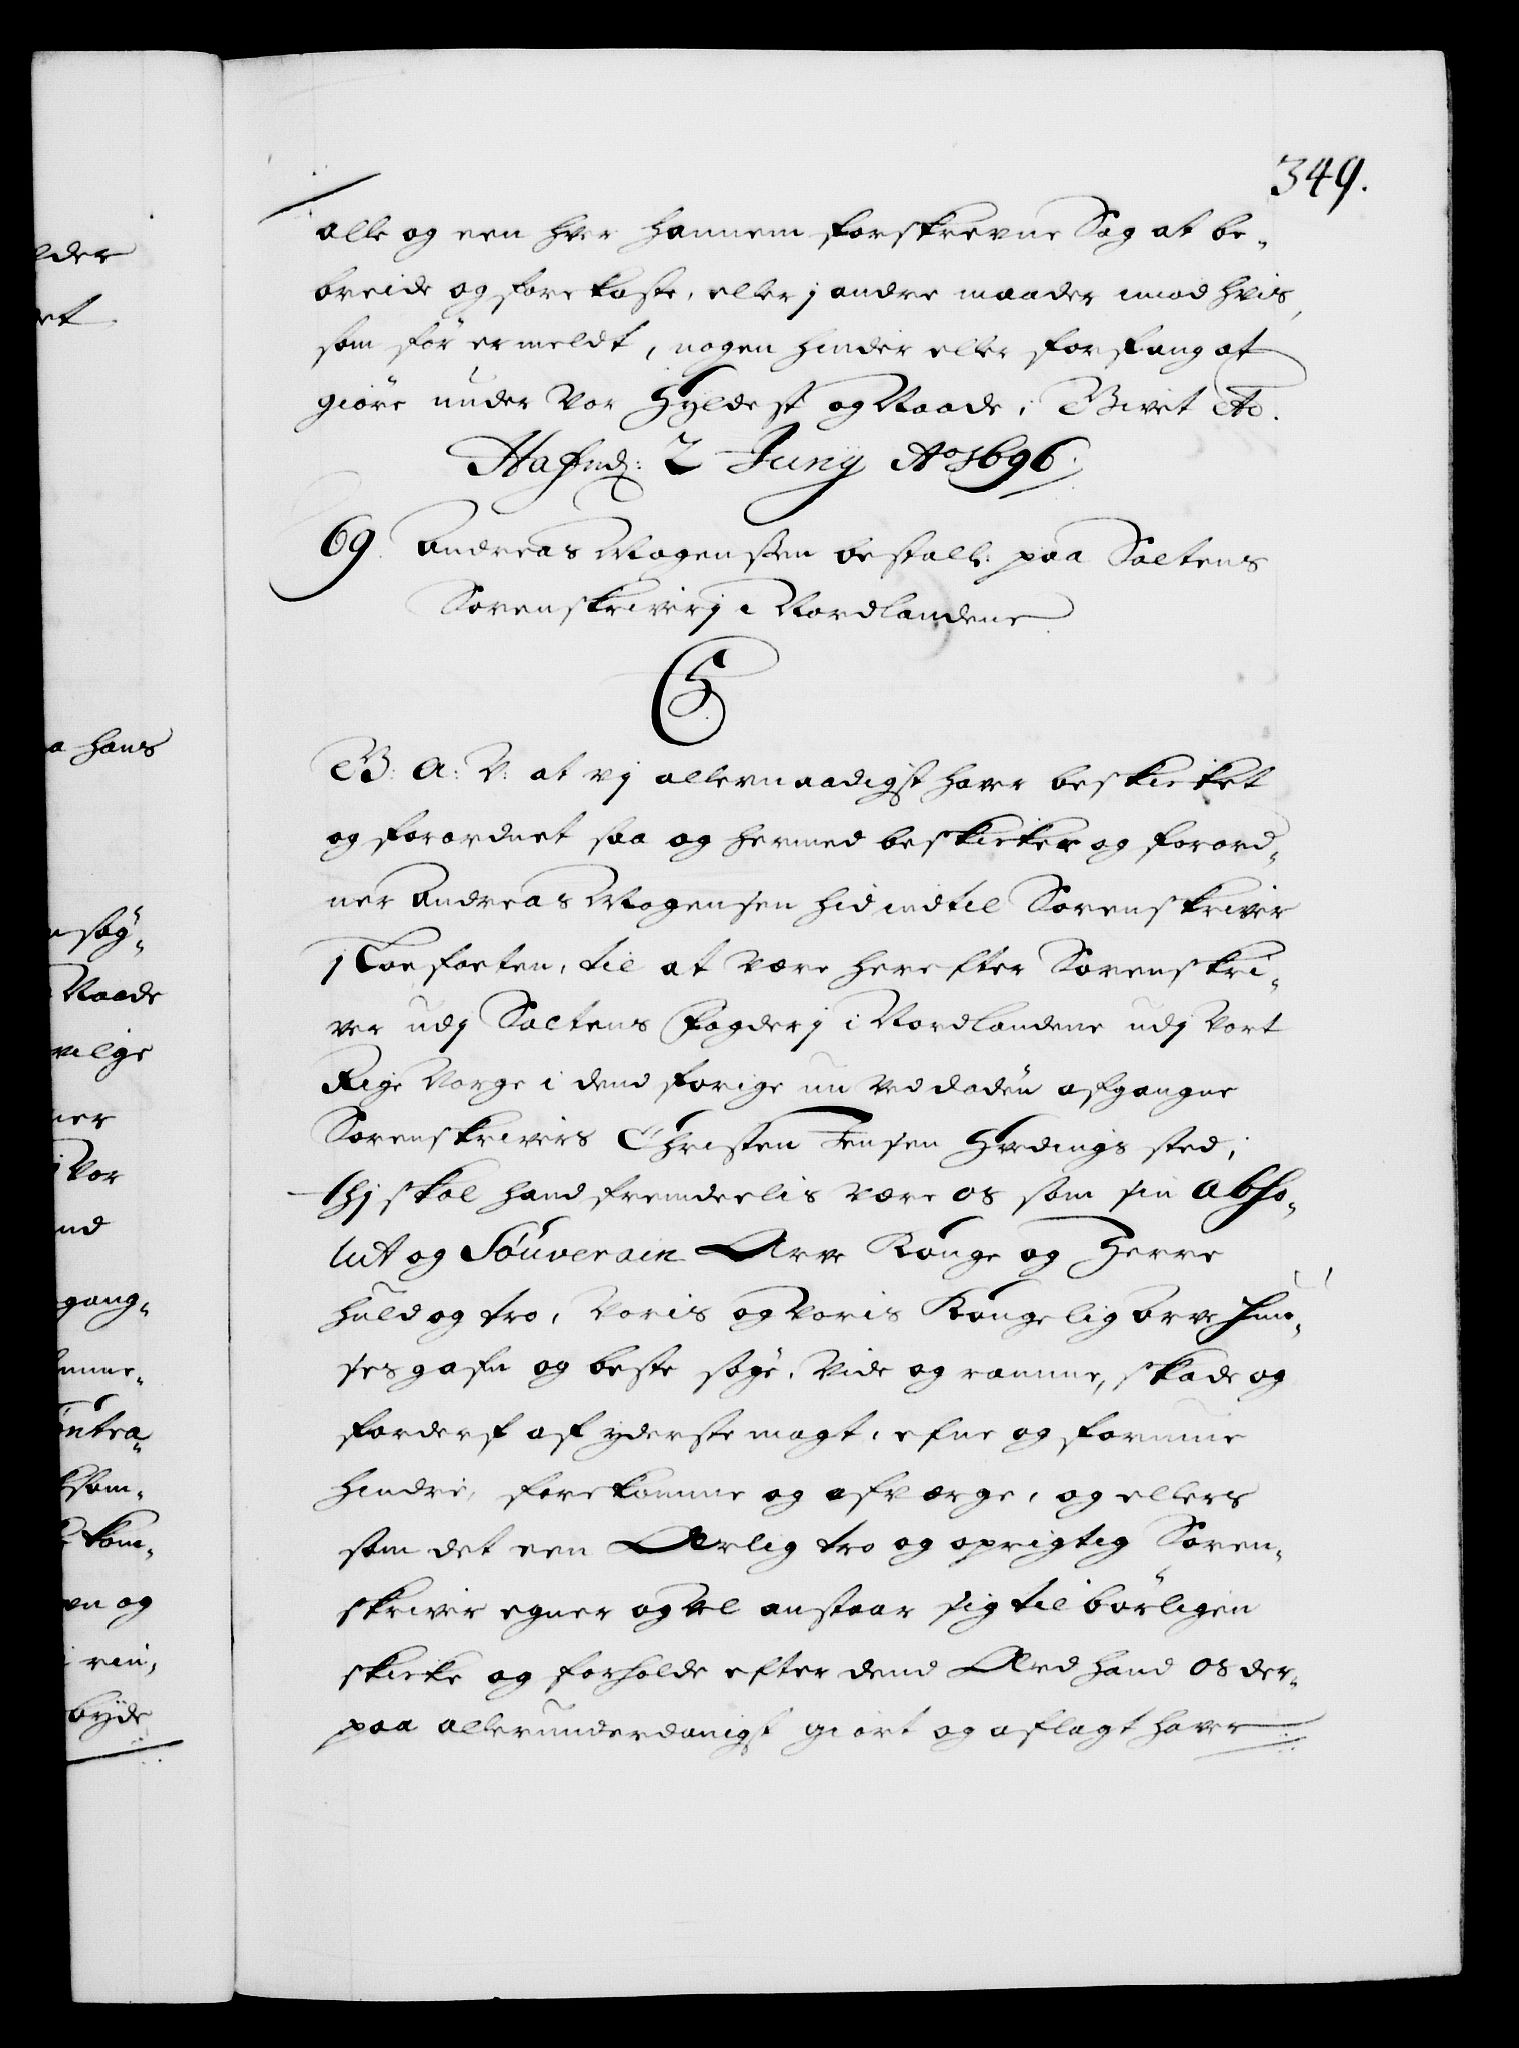 349.
alle og een hver hannem forskrevne Sag at be-
breide og forekaste, eller j andre maader imod hvis,
som før ermeldt, nogen hinder eller forfang at
giøre under Vor Hyldest og Naade, Givet etc.
Hafnd: 2 Juny Ao 1696.
69. Andreas Mogensen bestall: paa Saltens
Sorenskriverj i Nordlandene
C5
G: A: V: at vj allernaadigst haver beskicket
og forordnet saa og hermed beskicker og forord-
ner Andreas Mogensen hid indtil Sorenskriver
j Loefoeten, til at være herefter Sorenskri-
ver udj Saltens Fogderj i Nordlandene udj Vort
Rige Norge i dend forige nu ved døden afgangne
Sorenskrivers Christen Jensen Hvedings sted,
thj skal hand fremdeelis være os som sin abso-
lut og Souverain Arve Konge og Herre
huld og tro, Voris og Voris Kongelig Arve Huu-
ses gafn og beste søge, Vide og ramme, skade og
forderf af yderste magt, efne og formue
hindre, forekomme og afværge, og ellers
som det een Ærlig tro og oprigtig Soren-
skriver egner og vel anstaar sig tilbørligen
skicke og forholde efter dend Æed hand os der-
paa allerunderdanigst giort og aflagt haver
elder
et
a hans
n søg-
Naade
vilge
ner
i Vor
nd
gang-
ontra-
ksom-
kom-
en og
byde